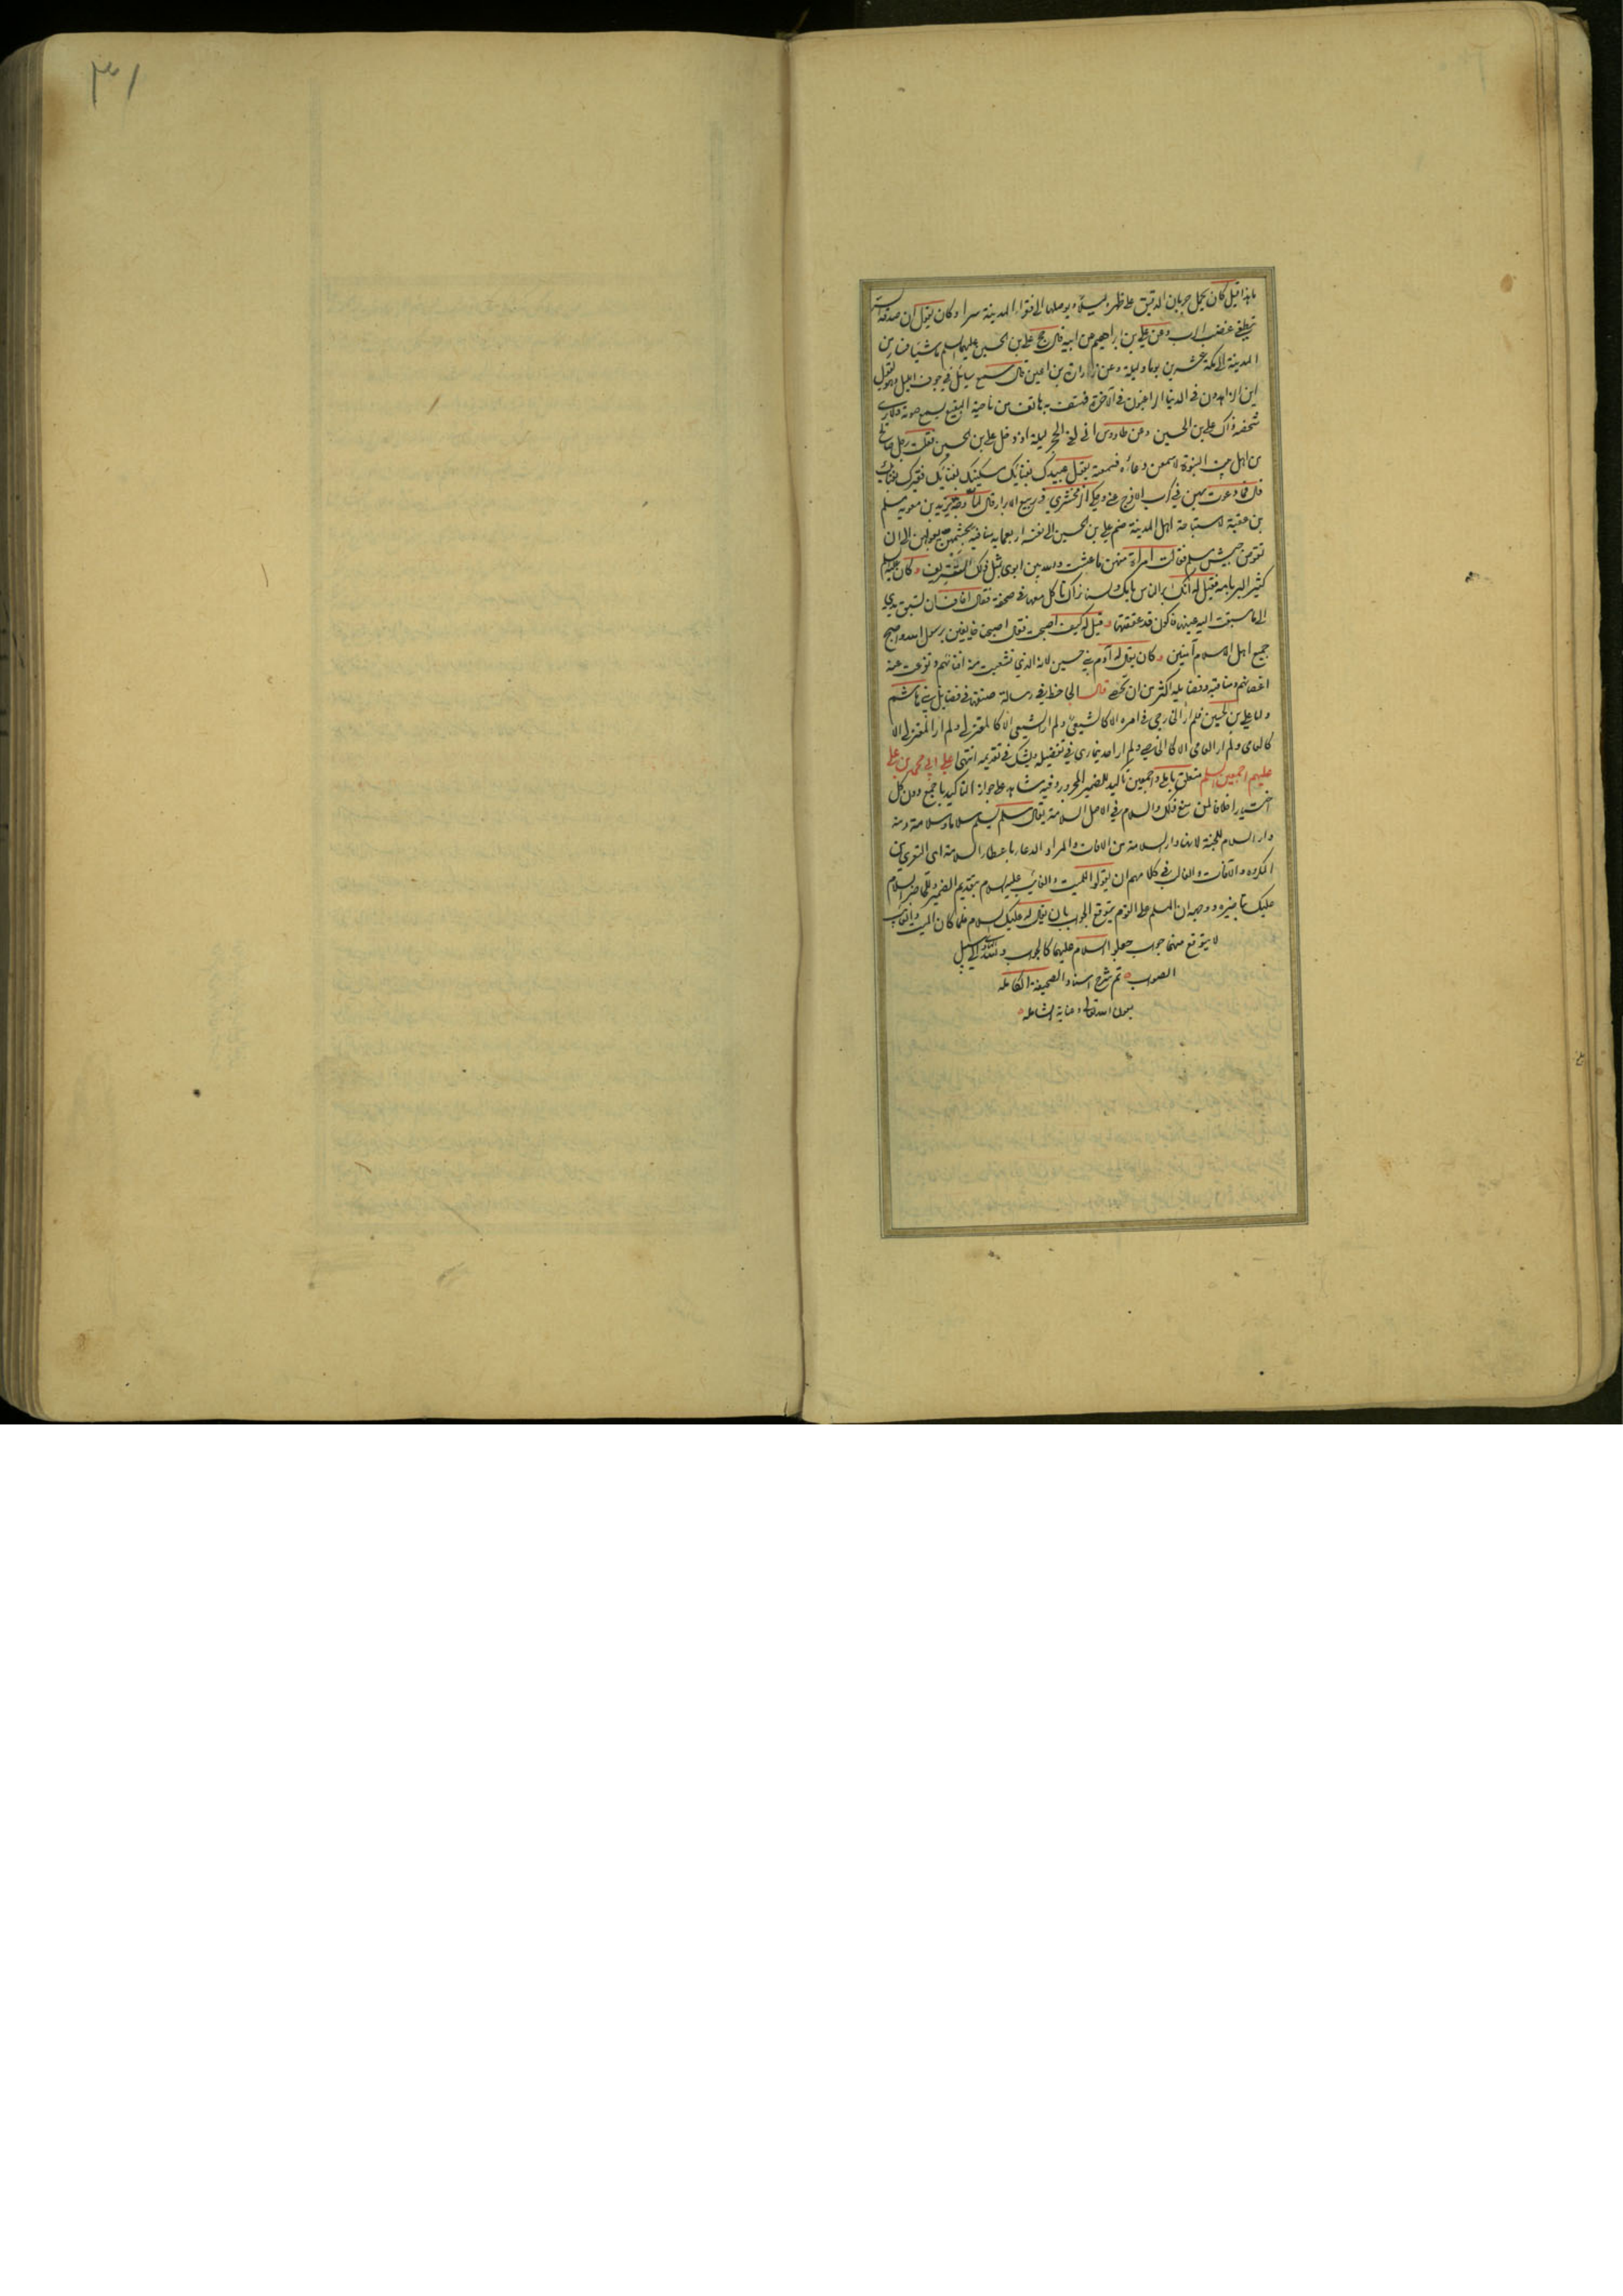 ما هذا قيل كان يحمل جربان الدقيق على ظهره ليلا و يوصلها الى فقراء المدينة سرا و كان يقول ان صدقة السر
تطفى غضب الرب و عن علي بن ابراهيم عن ابيه قال حج علي بن الحسين عليهما السلم ماشيا فسار من
المدينة الى مكة عشرين يوما و ليلة و عن زرارة بن اعين قال سمع سائل في جوف الليل و هو يقول
اين الزاهدون في الدنيا الراغبون في الآخرة فهتف به هاتف من ناحية البقيع يسمع صوته و لا يرى
شخصه ذاك علي بن الحسين و عن طاووس اني لفي الحجر ليلة اذ دخل علي بن الحسين فقلت رجل صالح
من اهل بيت النبوة لاسمعن دعاءه فسمعته يقول عبيدك بفنائك مسكينك بفنائك فقيرك بفنائك
قال فما دعوت بهن في كرب الا فرج عني و حكى الزمخشري في ربيع الابرار قال لما وجه يزيد بن معوية مسلم
بن عقبة لاستباحة اهل المدينة ضم علي بن الحسين الى نفسه اربعمائة منافية بحشمهن يعولهن الى ان
تقوض جيش مسلم فقالت امراة منهن ما عشت و الله بين ابوي مثل ذلك التتريف و كان عليه السلم
كثير البر بامه فقيل له انك ابر الناس بامك و لسنا نراك تاكل معها في صحفة فقال اخاف ان تسبق يدي
الى ما سبقت اليه عينها فاكون قد عققتها و قيل له كيف اصبحت فقال اصبحنا خايفين برسول الله و اصبح
جميع اهل الاسلام آمنين و كان يقال له آدم بني حسين لانه الذي تشعبت منه افنانهم و تفرعت عنه
اغصانهم و مناقبه و فضايله اكثر من ان تحصى قال الجاحظ في رسالة صنفها في فضايل بني هاشم
و اما علي بن الحسين فلم ار الخارجي في امره الا كالشيعي و لم ار الشيعي الا كالمعتزلي و لم ار المعتزلي الا
كالعامي و لم ار العامي الا كالخاصي و لم ار احد يتمارى في تفضيله و يشك في تقديمه انتهى على ابي محمد بن علي
عليهم اجمعين السلم متعلق بابلى و اجمعين تاكيد للضمير المجرور و فيه شاهد على جواز التاكيد باجمع دون كل
اختيارا خلافا لمن منع ذلك و السلام في الاصل السلامة يقال سلم يسلم سلاما و سلامة و منه
دار السلام للجنة لانها دار السلامة من الافات و المراد الدعاء باعطاء السلامة اي التعري من
المكروه و الآفات و الغالب في كلامهم ان يقولوا للميت و الغائب عليه السلام بتقديم الضمير و للحاضر السلام
عليك بتاخيره و وجهه ان المسلم على القوم يتوقع الجواب بان يقال له عليك السلام فلما كان الميت و الغائب
لا يتوقع منهما جواب جعلوا السلام عليهما كالجواب و الله الهادي الى سبيل
الصواب تم شرح اسناد الصحيفة الكاملة
بعون الله تعالى و عنايته الشاملة
٣١